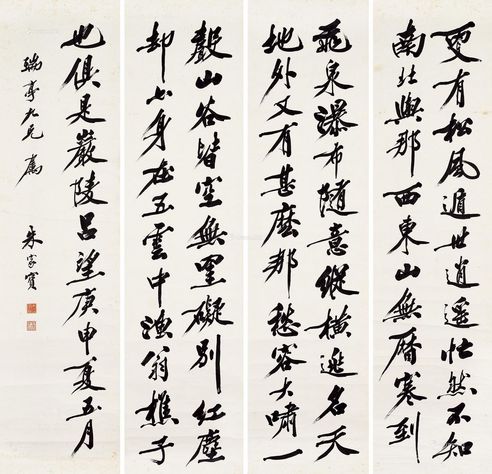 更有松风遁世逍遥恍然不知
南北與那西東山無曆寒到
飛泉瀑布隨意縱横逃名天
地外又有甚麼那愁容大嘯一
聲山谷皆空無罣礙别紅塵
却也身在五雲中漁翁樵子
也俱是嚴陵吕望庚申夏五月
瑞亭九兄属
朱家寶